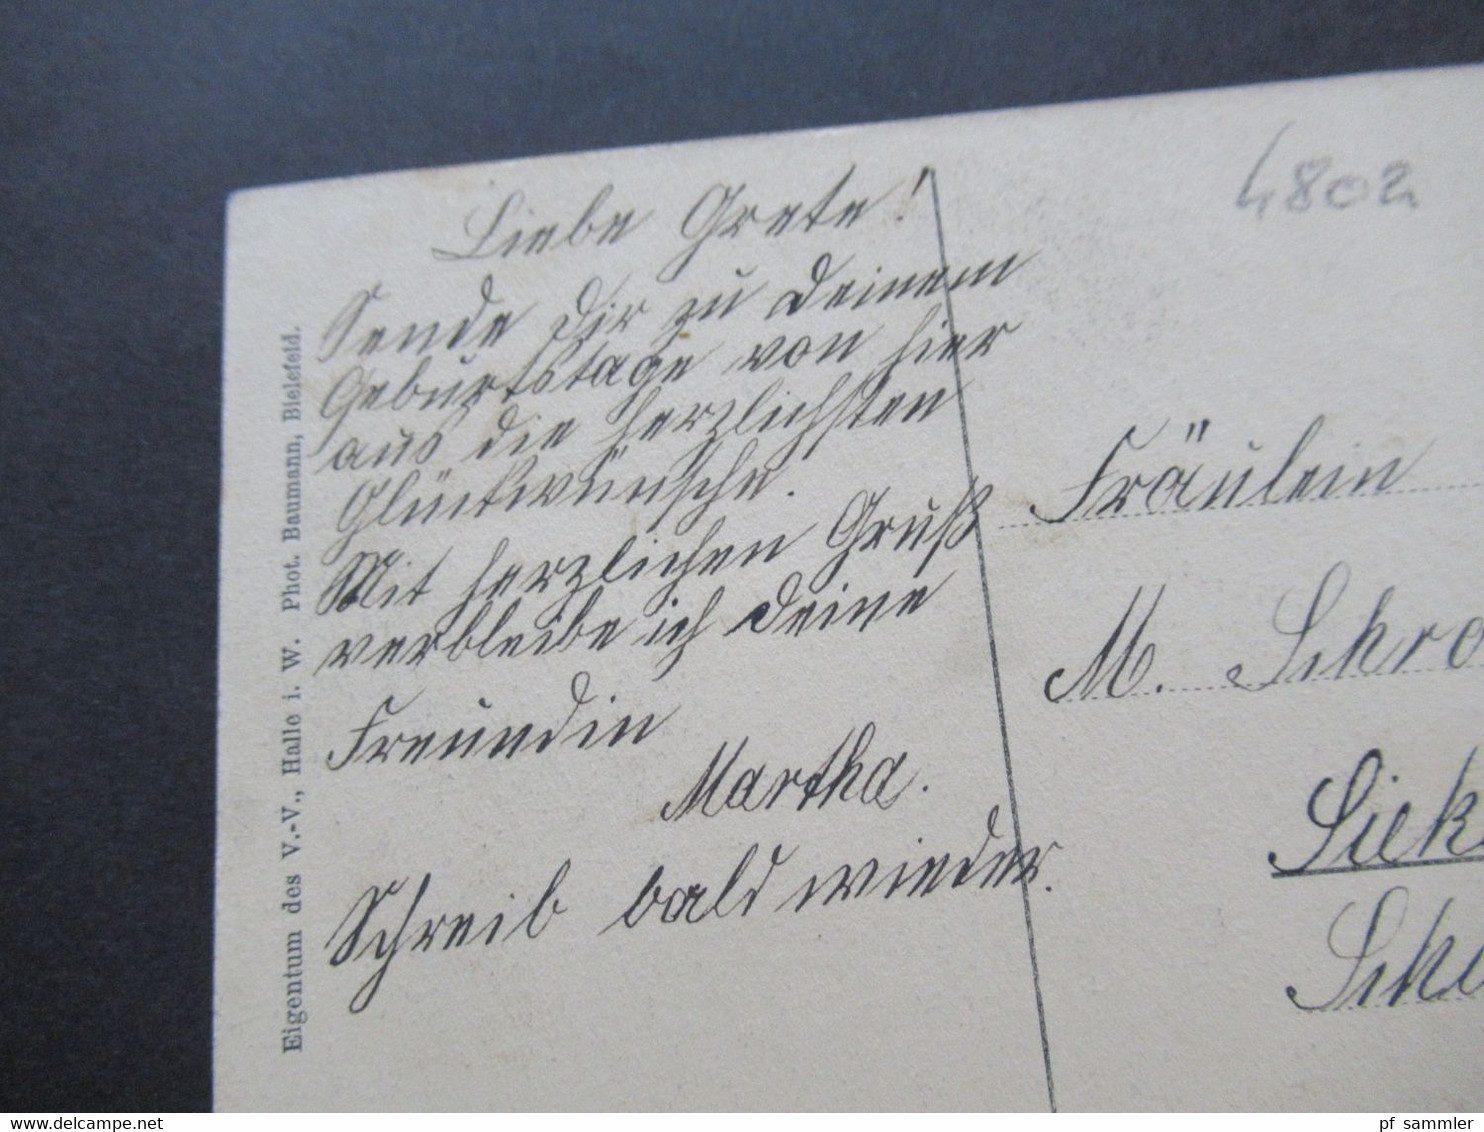 4802
Liebe Grete!
Sende Dir zu Deinem
Geburtstage von hier
aus die herzlichsten
Glückwünsche.
Mit herzlichen Gruß
verbleibe ich Deine
Freundin
Martha.
Schreib bald wieder.
Fräulein
M. Schro
Siek
Eigentum des V.-V., Halle i. W. Phot. Baumann, Bielefeld.
www.delcampe.net
pf_sammler